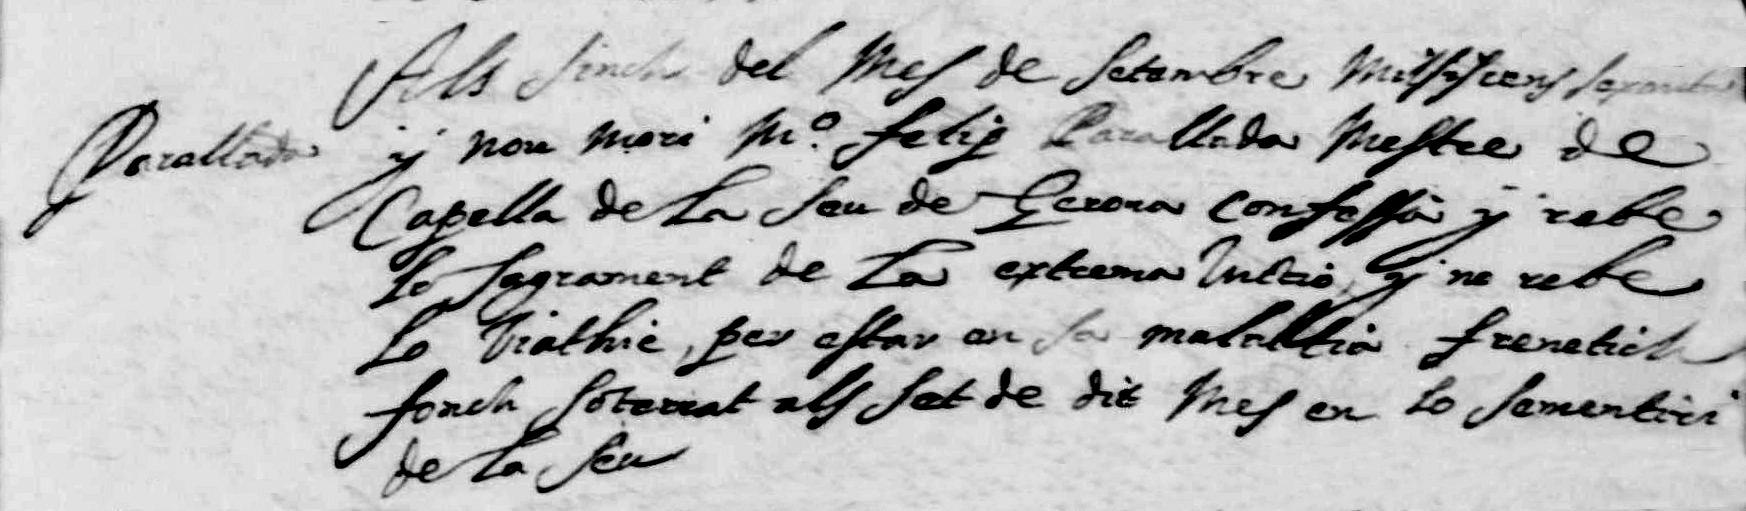 Als sinch del Mes de Setembre Mil siscens sexanta
Parallada y nou mori M.º felip Parallada Mestre de
Capella de La Seu de Gerona confessà y rebe
lo Sagrament de La extrema Unctio, y no rebe
lo Viathic, per estar en sa malaltia frenetich
fonch soterrat als set de dit Mes en lo Sementiri
de La Seu